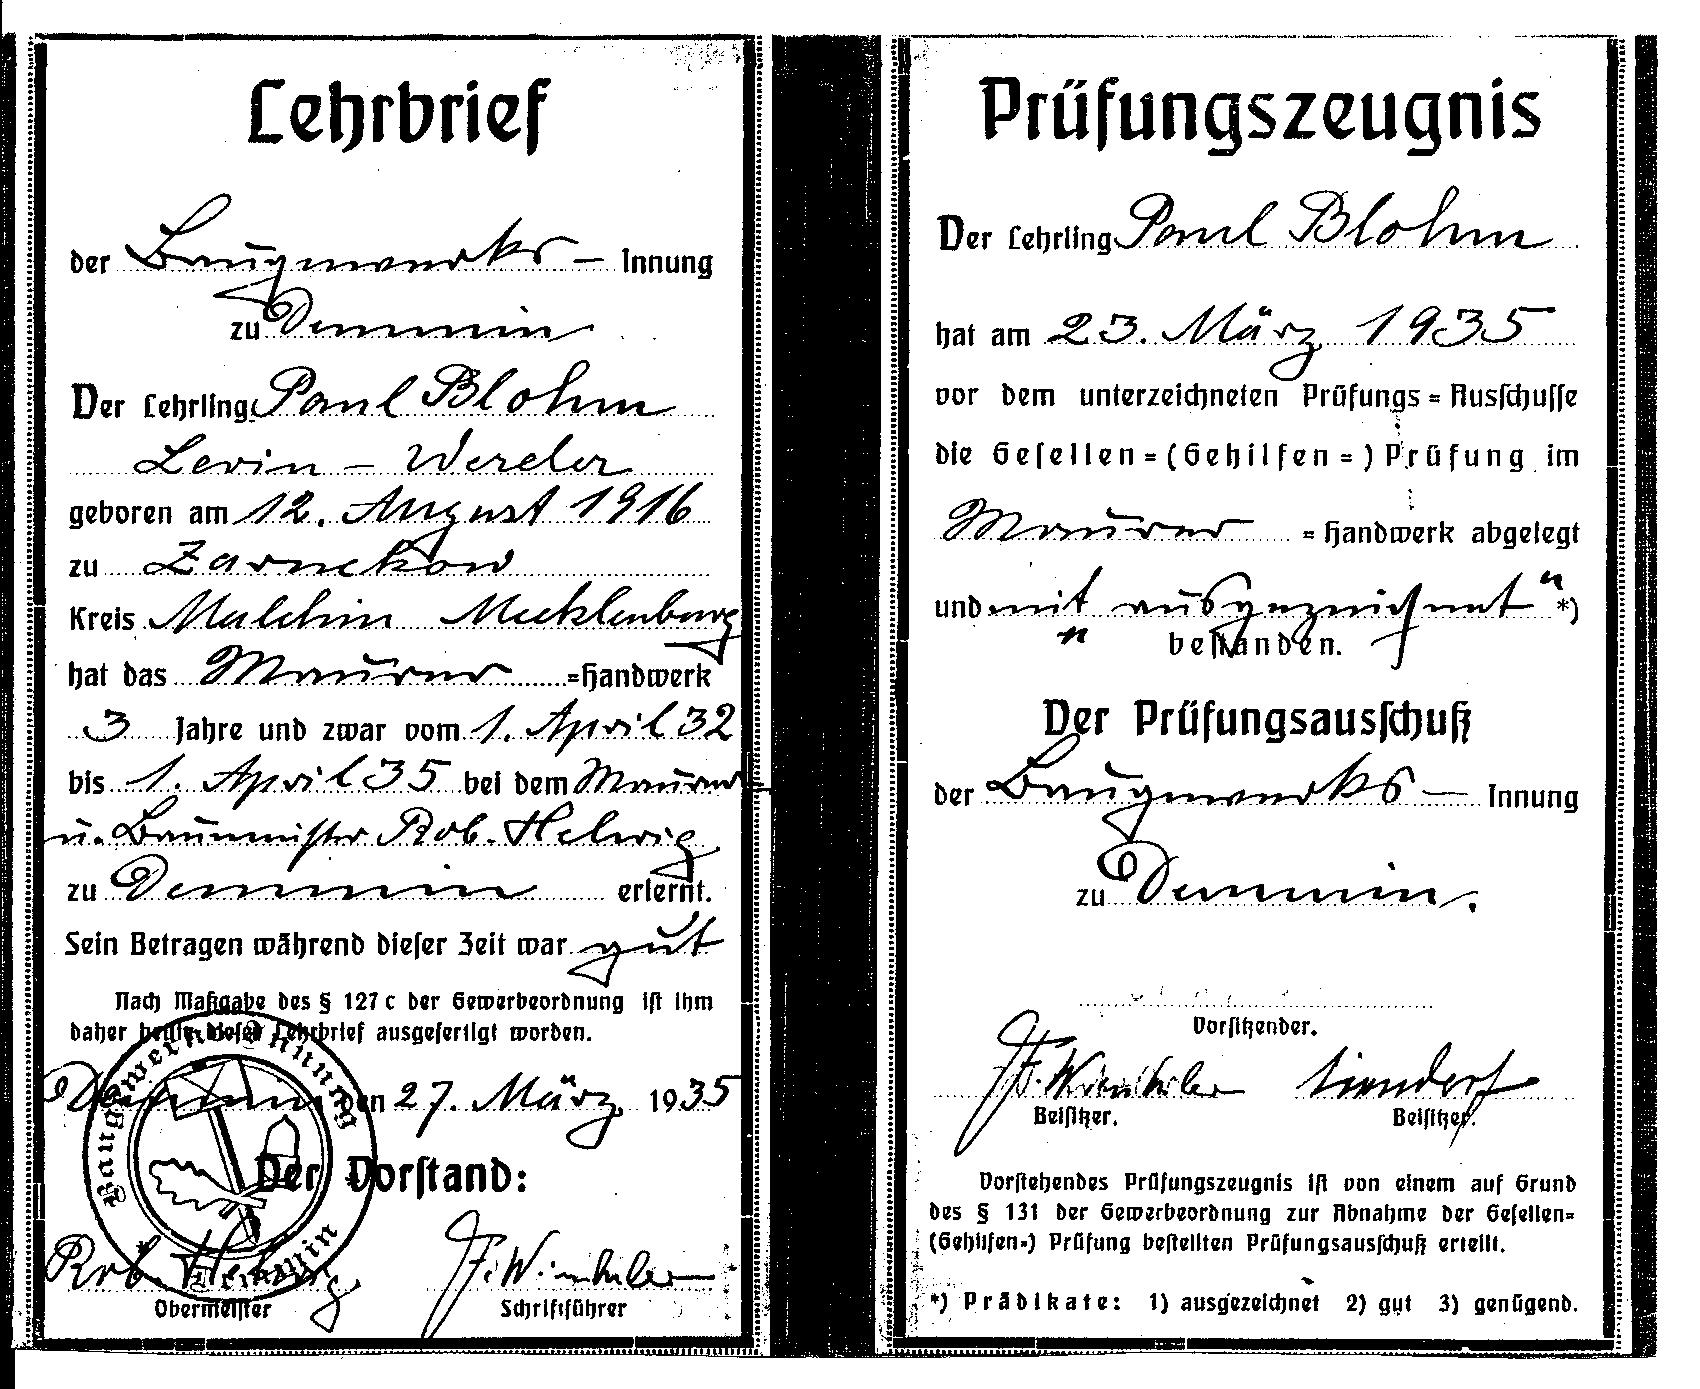 Lehrbrief
der Baugewerks – Innung
zu Demmin
Der Lehrling Paul Blohm
Levin – Werder
geboren am 12. August 1916
zu Zarnekow
Kreis Malchin Mecklenburg
hat das Maurer =Handwerk
3 Jahre und zwar vom 1. April 32
bis 1. April 35 bei dem Maurer-
u. Baumeister Rob. Helwig
zu Demmin erlernt.
Sein Betragen während dieser Zeit war gut
Nach Maßgabe des § 127c der Gewerbeordnung ist ihm
daher heute dieser Lehrbrief ausgefertigt worden.
Demmin den 27. März 1935
Baugewerks Innung
Demmin
Der Vorstand:
Rob. Helwig
Obermeister
Schriftführer
Prüfungszeugnis
Der Lehrling Paul Blohm
hat am 23. März 1935
vor dem unterzeichneten Prüfungs=Ausschusse
die Gesellen=(Gehilfen=) Prüfung im
Maurer =Handwerk abgelegt
und mit „ausgezeichnet" *)
bestanden.
Der Prüfungsausschuß
der Baugewerks – Innung
zu Demmin.
Vorsitzender.
Beisitzer. Beisitzer.
Vorstehendes Prüfungszeugnis ist von einem auf Grund
des § 131 der Gewerbeordnung zur Abnahme der Gesellen=
(Gehilfen=) Prüfung bestellten Prüfungsausschuß erteilt.
*) Prädikate: 1) ausgezeichnet 2) gut 3) genügend.